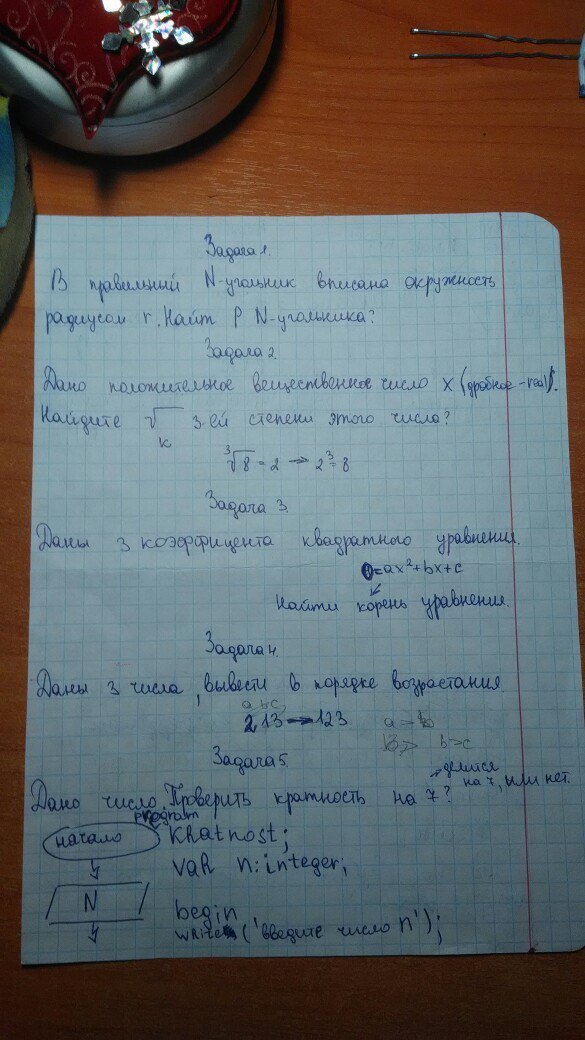 Задача 1.
В правильный N-угольник вписана окружность
радиусом r. Найт P N-угольника?
Задача 2
Дано положительное вещественное число x (дробное - real).
Найдите √ 3-ей степени этого числа?
к
³√8 = 2 → 2³ = 8
Задача 3.
Даны 3 коэффицента квадратного уравнения.
0=ax²+bx+c
Найти корень уравнения.
Задача 4.
Даны 3 числа, вывести в порядке возрастания.
abc
213 → 123 a > b
b > c
Задача 5.
→ делится
на 7, или нет.
Дано число. Проверить кратность на 7?
program
начало Kratnost;
var n: integer;
N begin
write ('введите число n');